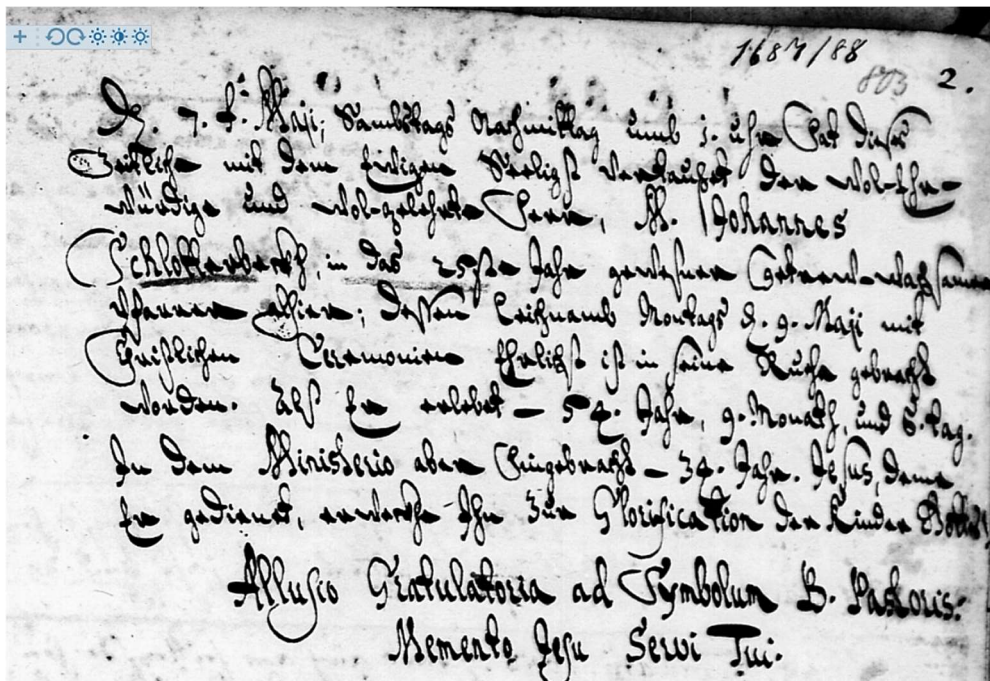 1687/88
803 2.
D. 7. t. Maji, Sambstags Nachmittag umb 1. uhr Hat dieses
Zeitliche mit dem Ewigen Seeligst verthauschet der Wol-Ehr-
würdige und Wol-gelehrte Herr, M. Johannes
Schlotterbeckh, in das 25ste Jahr gewesener Getrew-wachsamer
Pfarrer allhier; dessen Leichnamb Montags d. 9. Maji mit
Christlichen Ceremonien Ehrlichst ist in seine Ruhe gebracht
worden. Alß Er erlebet – 54. Jahr, 9. Monath, und 6. Tag.
In dem Ministerio aber Hingebracht – 34. Jahr. Jesus, deme
Er gedienet, erwecke Ihn zur Glorification der Kinder Gottes!
Allusio Gratulatoria ad Symbolum B. Pastoris:
Memento Jesu Servi Tui.